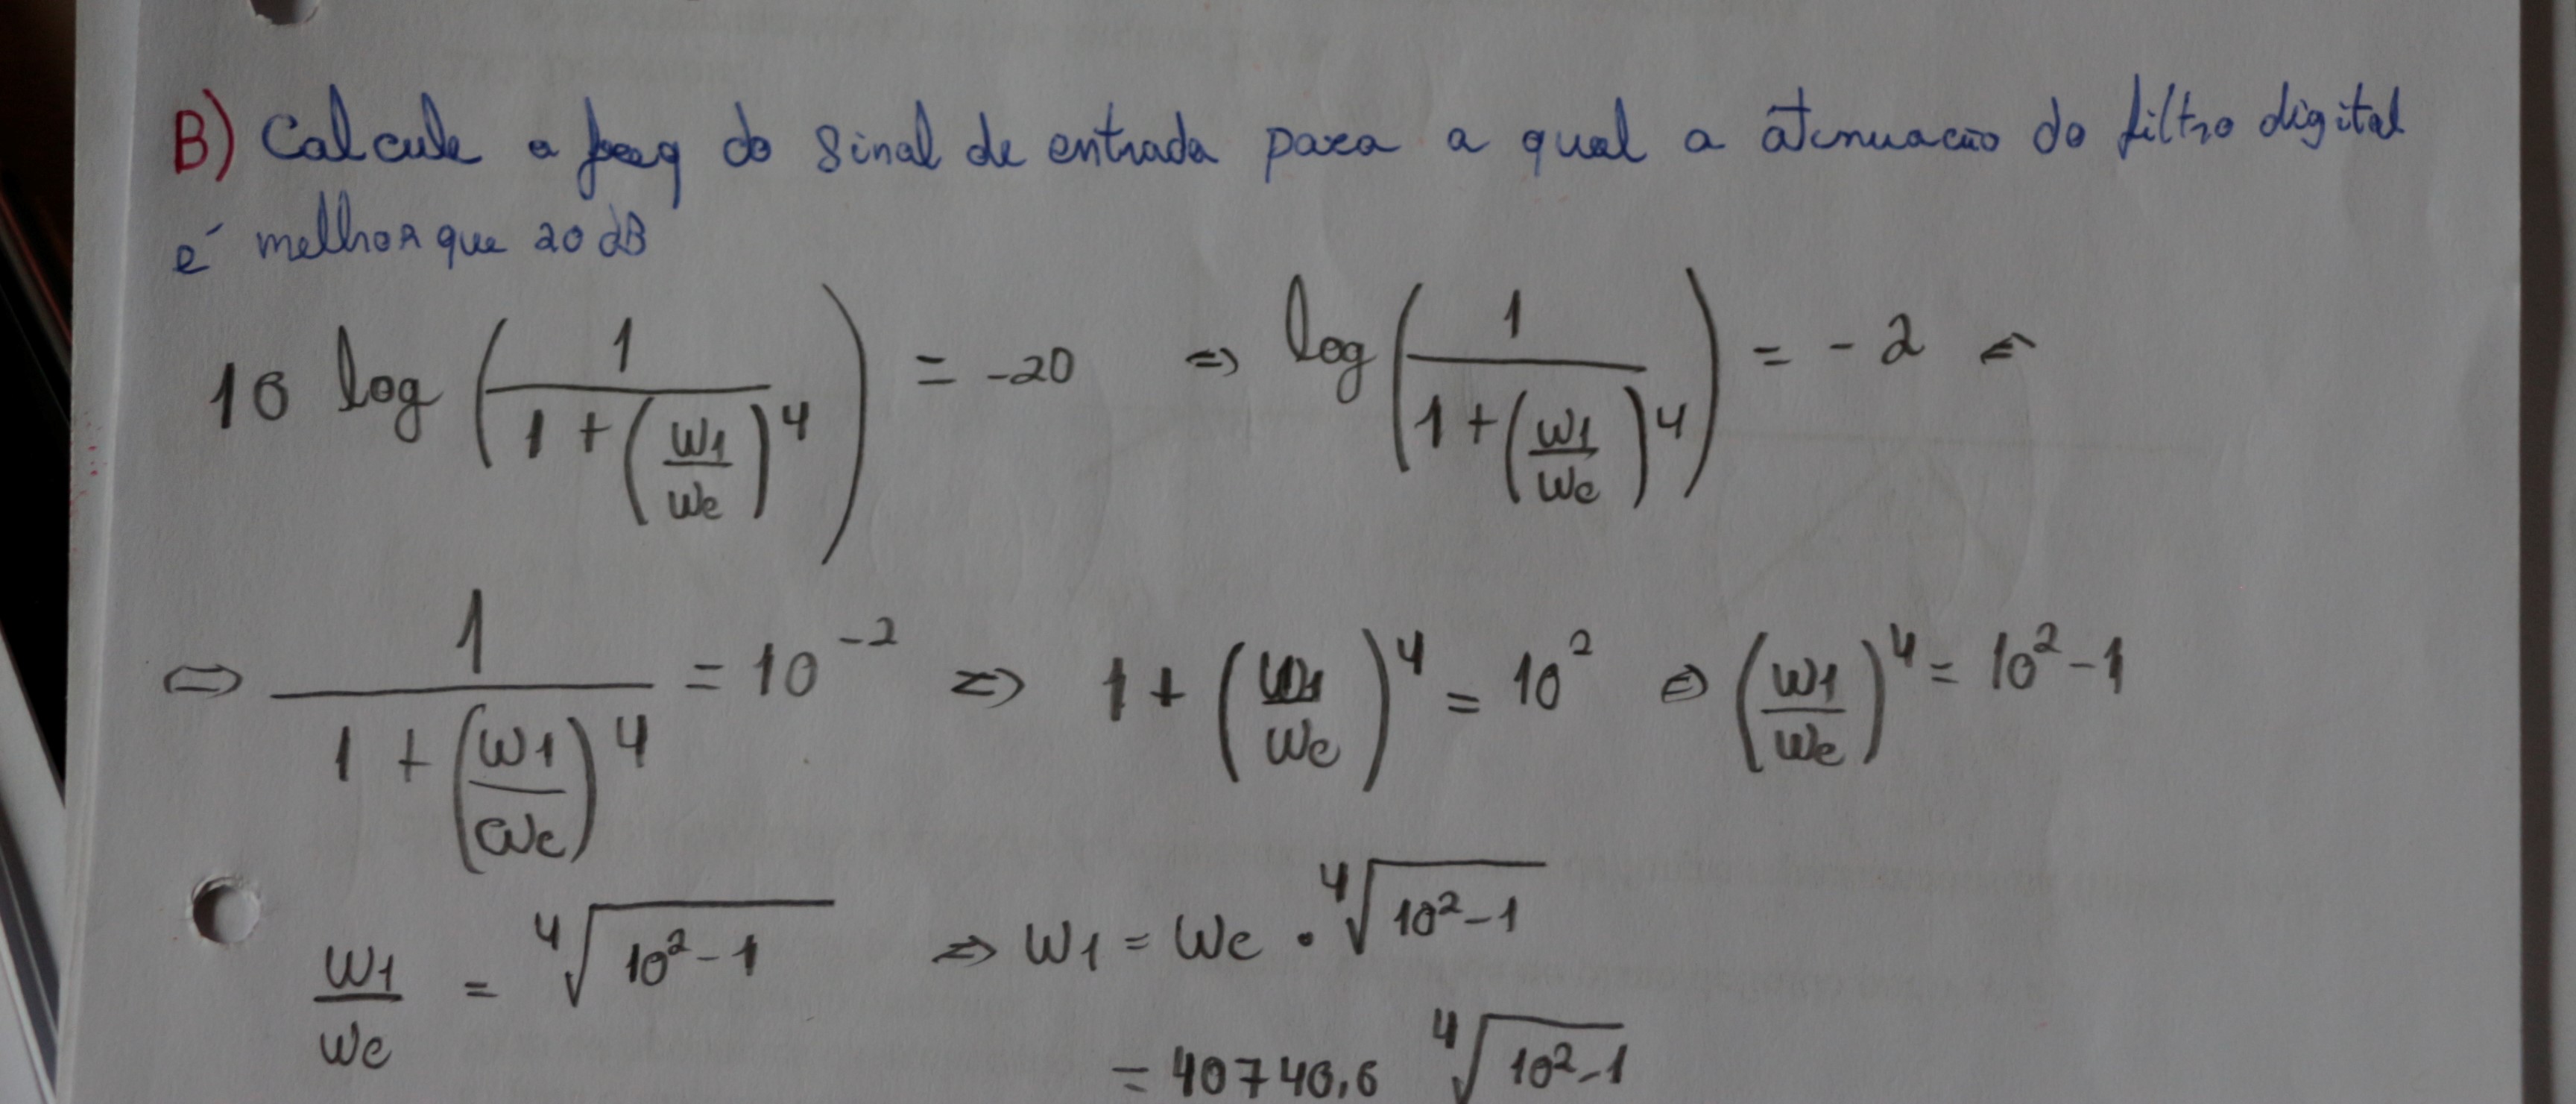 B) Calcule a freq do sinal de entrada para a qual a atenuacão do filtro digital
é melhor que 20 dB
10 log (1 / (1 + (w1/wc)^4)) = -20 => log (1 / (1 + (w1/wc)^4)) = -2 <=
<=> 1 / (1 + (w1/wc)^4) = 10^-2 <=> 1 + (w1/wc)^4 = 10^2 <=> (w1/wc)^4 = 10^2 - 1
w1/wc = ⁴√(10^2 - 1) => w1 = wc · ⁴√(10^2 - 1)
= 40740,6 ⁴√(10^2 - 1)